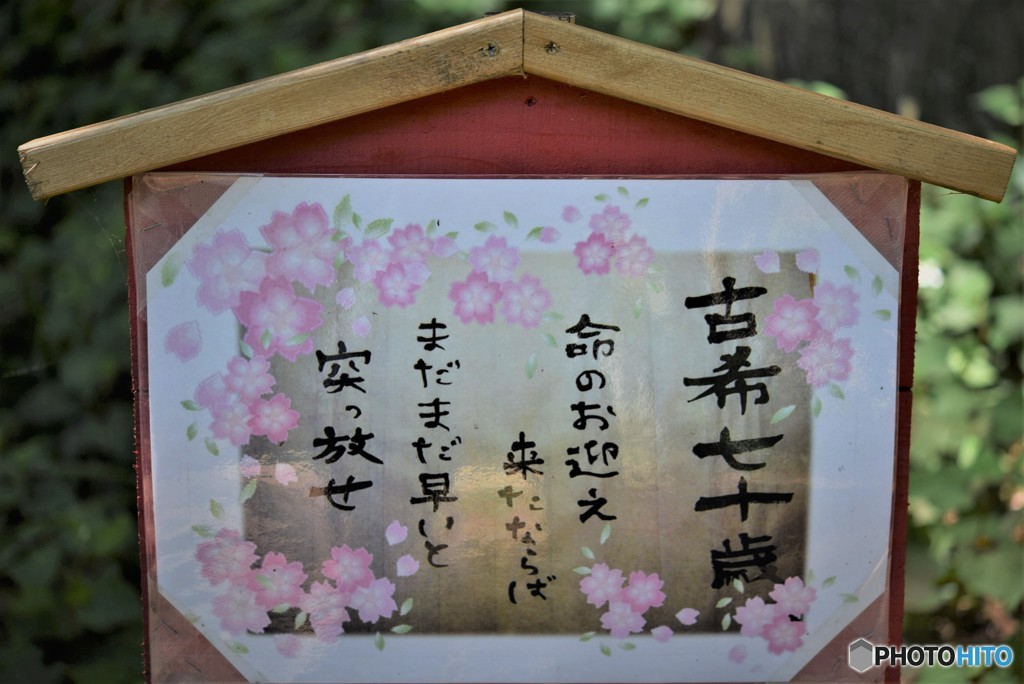 古希七十歳
命のお迎え
来たならば
まだまだ早いと
突っ放せ
PHOTOHITO